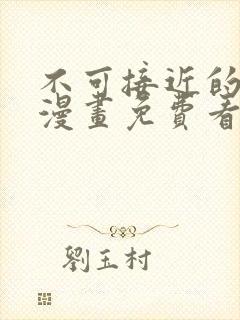 不可接近的
漫畫免費看
劉玉村